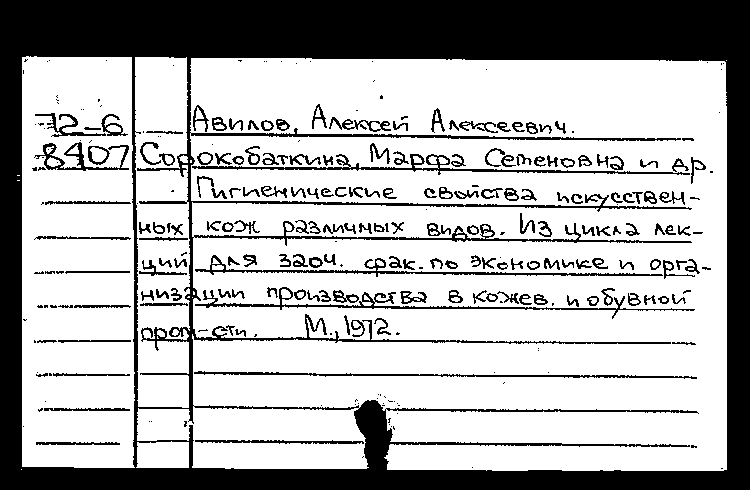 72-6 Авилов, Алексей Алексеевич.
8407 Сорокобаткина, Марфа Семеновна и др.
Гигиенические свойства искусствен-
ных кож различных видов. Из цикла лек-
ций для заоч. фак. по экономике и орга-
низации производства в кожев. и обувной
пром-сти. М., 1972.